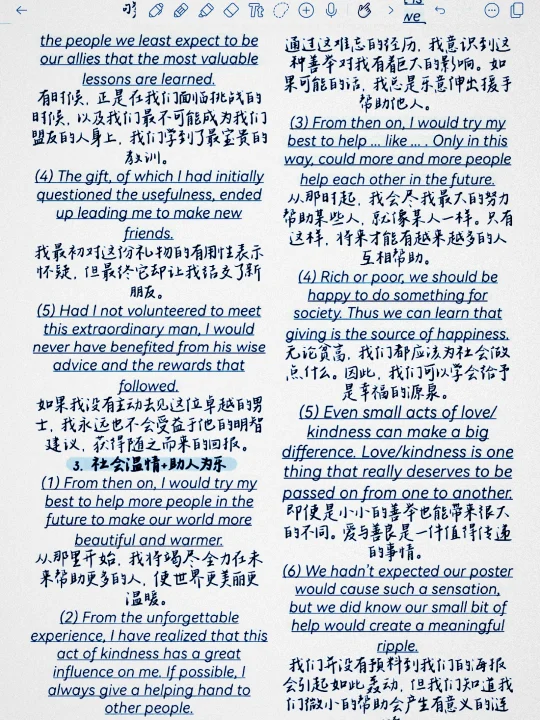 the people we least expect to be
our allies that the most valuable
lessons are learned.
有时候，正是在我们面临挑战的
时候，以及我们最不可能成为我们
盟友的人身上，我们学到了最宝贵的
教训。
(4) The gift, of which I had initially
questioned the usefulness, ended
up leading me to make new
friends.
我最初对这份礼物的有用性表示
怀疑，但最终它却让我结交了新
朋友。
(5) Had I not volunteered to meet
this extraordinary man, I would
never have benefited from his wise
advice and the rewards that
followed.
如果我没有主动去见这位卓越的男
士，我永远也不会受益于他的明智
建议，获得随之而来的回报。
3. 社会温情+助人为乐
(1) From then on, I would try my
best to help more people in the
future to make our world more
beautiful and warmer.
从那里开始，我将竭尽全力在未
来帮助更多的人，使世界更美丽更
温暖。
(2) From the unforgettable
experience, I have realized that this
act of kindness has a great
influence on me. If possible, I
always give a helping hand to
other people.
通过这难忘的经历，我意识到这
种善举对我有着巨大的影响。如
果可能的话，我总是乐意伸出援手
帮助他人。
(3) From then on, I would try my
best to help ... like ... . Only in this
way, could more and more people
help each other in the future.
从那时起，我会尽我最大的努力
帮助某些人，就像某人一样。只有
这样，将来才能有越来越多的人
互相帮助。
(4) Rich or poor, we should be
happy to do something for
society. Thus we can learn that
giving is the source of happiness.
无论贫富，我们都应该为社会做
点什么。因此，我们可以学会给予
是幸福的源泉。
(5) Even small acts of love/
kindness can make a big
difference. Love/kindness is one
thing that really deserves to be
passed on from one to another.
即使是小小的善举也能带来很大
的不同。爱与善良是一件值得传递
的事情。
(6) We hadn't expected our poster
would cause such a sensation,
but we did know our small bit of
help would create a meaningful
ripple.
我们并没有预料到我们的海报
会引起如此轰动，但我们知道我
们微小的帮助会产生有意义的涟